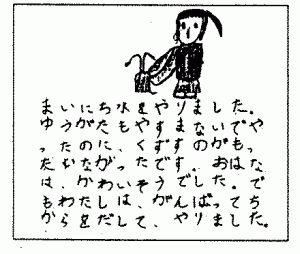 まいにち水をやりました。
ゆうがたも、やすまないでや
ったのに、くずすのがもっ
たいなかったです。おはな
は、かわいそうでした。で
もわたしは、がんばってち
からをだして、やりました。